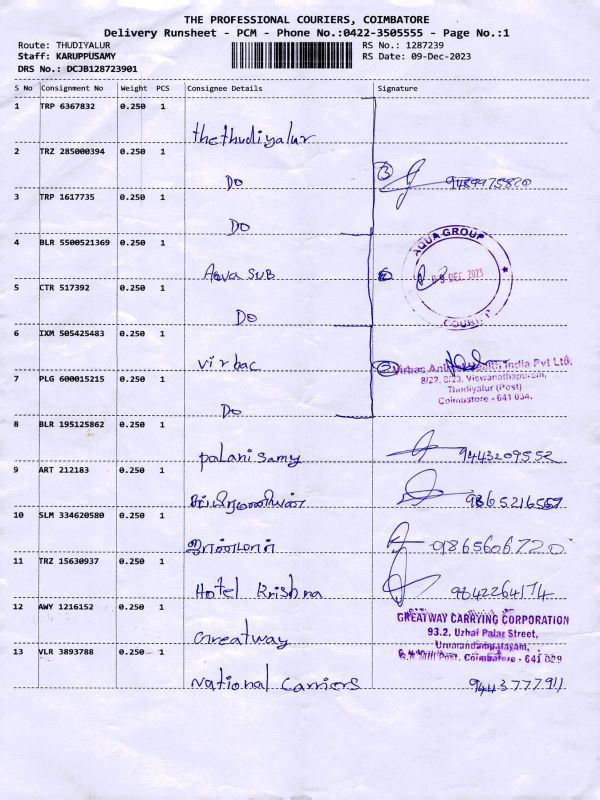 THE PROFESSIONAL COURIERS, COIMBATORE
Delivery Runsheet - PCM - Phone No.:0422-3505555 - Page No.:1
Route: THUDIYALUR RS No.: 1287239
Staff: KARUPPUSAMY RS Date: 09-Dec-2023
DRS No.: DCJB128723901
S No Consignment No Weight PCS Consignee Details Signature
1 TRP 6367832 0.250 1
thethudiyalur
2 TRZ 285000394 0.250 1
Do 3 9489975820
3 TRP 1617735 0.250 1
Do
4 BLR 5500521369 0.250 1
AQUA GROUP
Aqua SUB 09 DEC 2023
5 CTR 517392 0.250 1
Do
6 IXM 505425483 0.250 1
virbac 2 Virbac Animal Health India Pvt Ltd.
8/22, 8/23, Viswanathapuram,
7 PLG 600015215 0.250 1
Thudiyalur (Post)
Coimbatore - 641 034.
Do
8 BLR 195125862 0.250 1
palani samy 9443209552
9 ART 212183 0.250 1
சுப்பிரமணியன் 9865216557
10 SLM 334620580 0.250 1
9865606720
11 TRZ 15630937 0.250 1
Hotel Krishna 9842264174
12 AWY 1216152 0.250 1
GREATWAY CARRYING CORPORATION
93.2, Uzhai Palar Street,
Greatway Urumandampalayam,
13 VLR 3893788 0.250 1
G.N Mill Post. Coimbatore - 641 029
National Carriers 9443777911